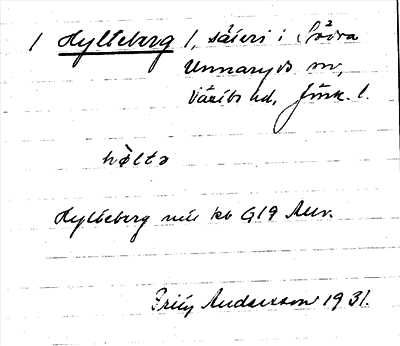 1 Hylteberg 1, säteri i Södra
Unnaryds sn,
Västbo hd, Jönk. l.
hə̀ltə
Hylteberg 1/1 kb G19 Unn.
Prily Andersson 1931.